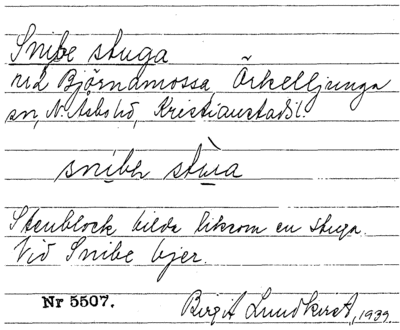 Snibe stuga
vid Björnamossa, Örkelljunga
sn, N. Åsbo hd, Kristianstads l.
snibə stùa
Stenblock bilda liksom en stuga.
Vid Snibe bjer.
Nr 5507.
Birgit Lundkvist, 1939.